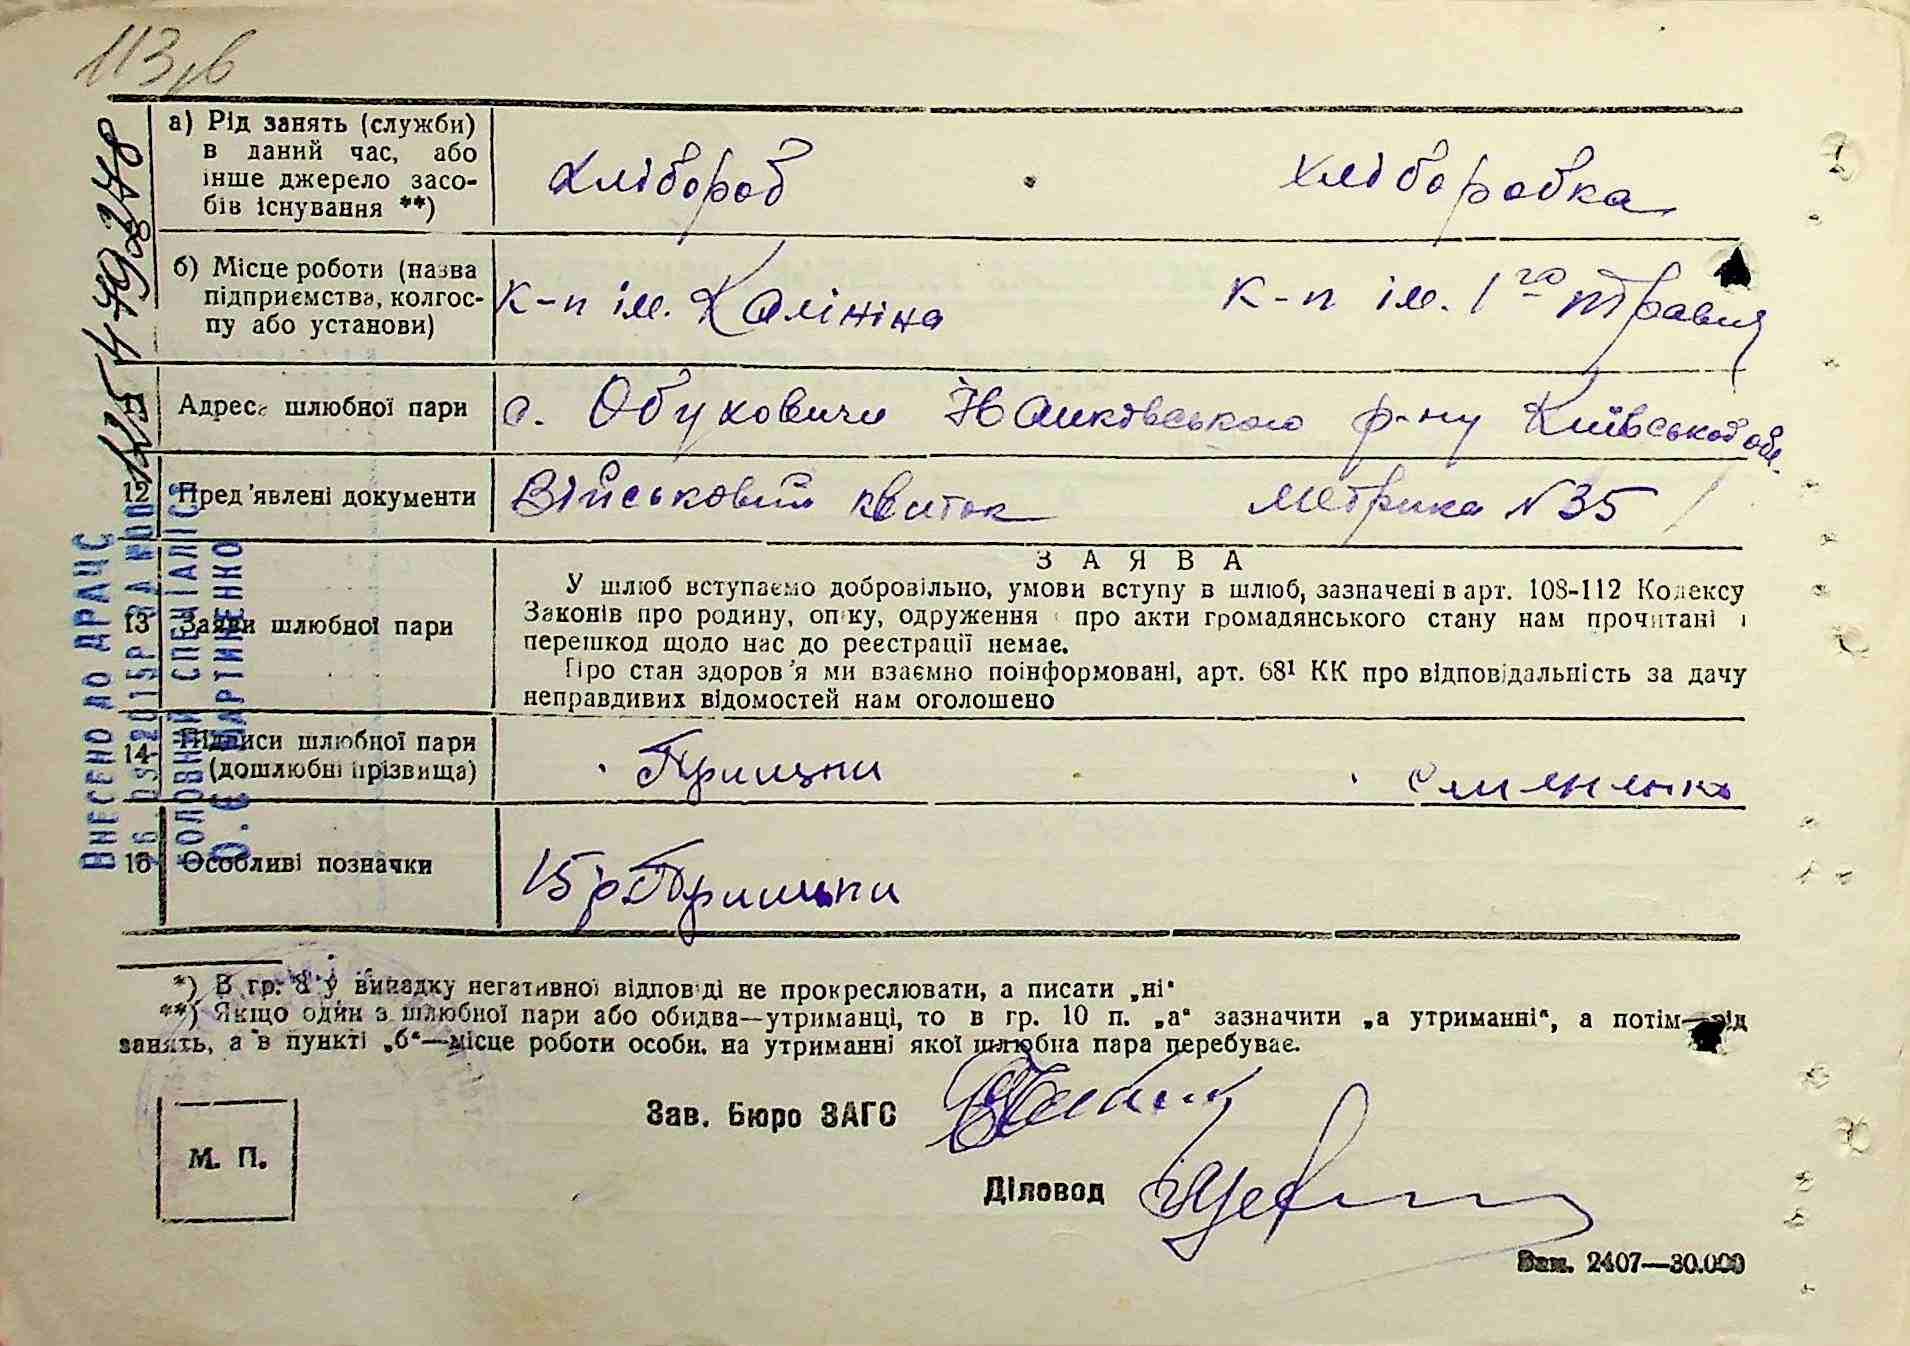 113,в
а) Рід занять (служби)
в даний час, або
інше джерело засо-
бів існування **)
Хлібороб
хліборобка
б) Місце роботи (назва
підприємства, колгос-
пу або установи)
к-п ім. Калініна
к-п ім. 1го травня
11 Адреса шлюбної пари
с. Обуховичи Іванківського р-ну Київської обл.
12 Пред'явлені документи
Військовий квиток
метрика N 35
13 Заяви шлюбної пари
ЗАЯВА
У шлюб вступаємо добровільно, умови вступу в шлюб, зазначені в арт. 108-112 Кодексу
Законів про родину, опіку, одруження і про акти громадянського стану нам прочитані і
перешкод щодо нас до реестрації немає.
Про стан здоров'я ми взаємно поінформовані, арт. 68¹ КК про відповідальність за дачу
неправдивих відомостей нам оголошено
14 Підписи шлюбної пари
(дошлюбні прізвища)
15 Особливі позначки
15р
*) В гр. 8 у випадку негативної відповіді не прокреслювати, а писати „ні“
**) Якщо один з шлюбної пари або обидва—утриманці, то в гр. 10 п. „а“ зазначити „а утриманні“, а потім—рід
занять, а в пункті „б“—місце роботи особи, на утриманні якої шлюбна пара перебуває.
Зав. Бюро ЗАГС
М. П.
Діловод
Зам. 2407—30.000
ВНЕСЕНО ДО ДРАЦС
ГОЛОВНИЙ СПЕЦІАЛІСТ
О.Є МАРТИНЕНКО